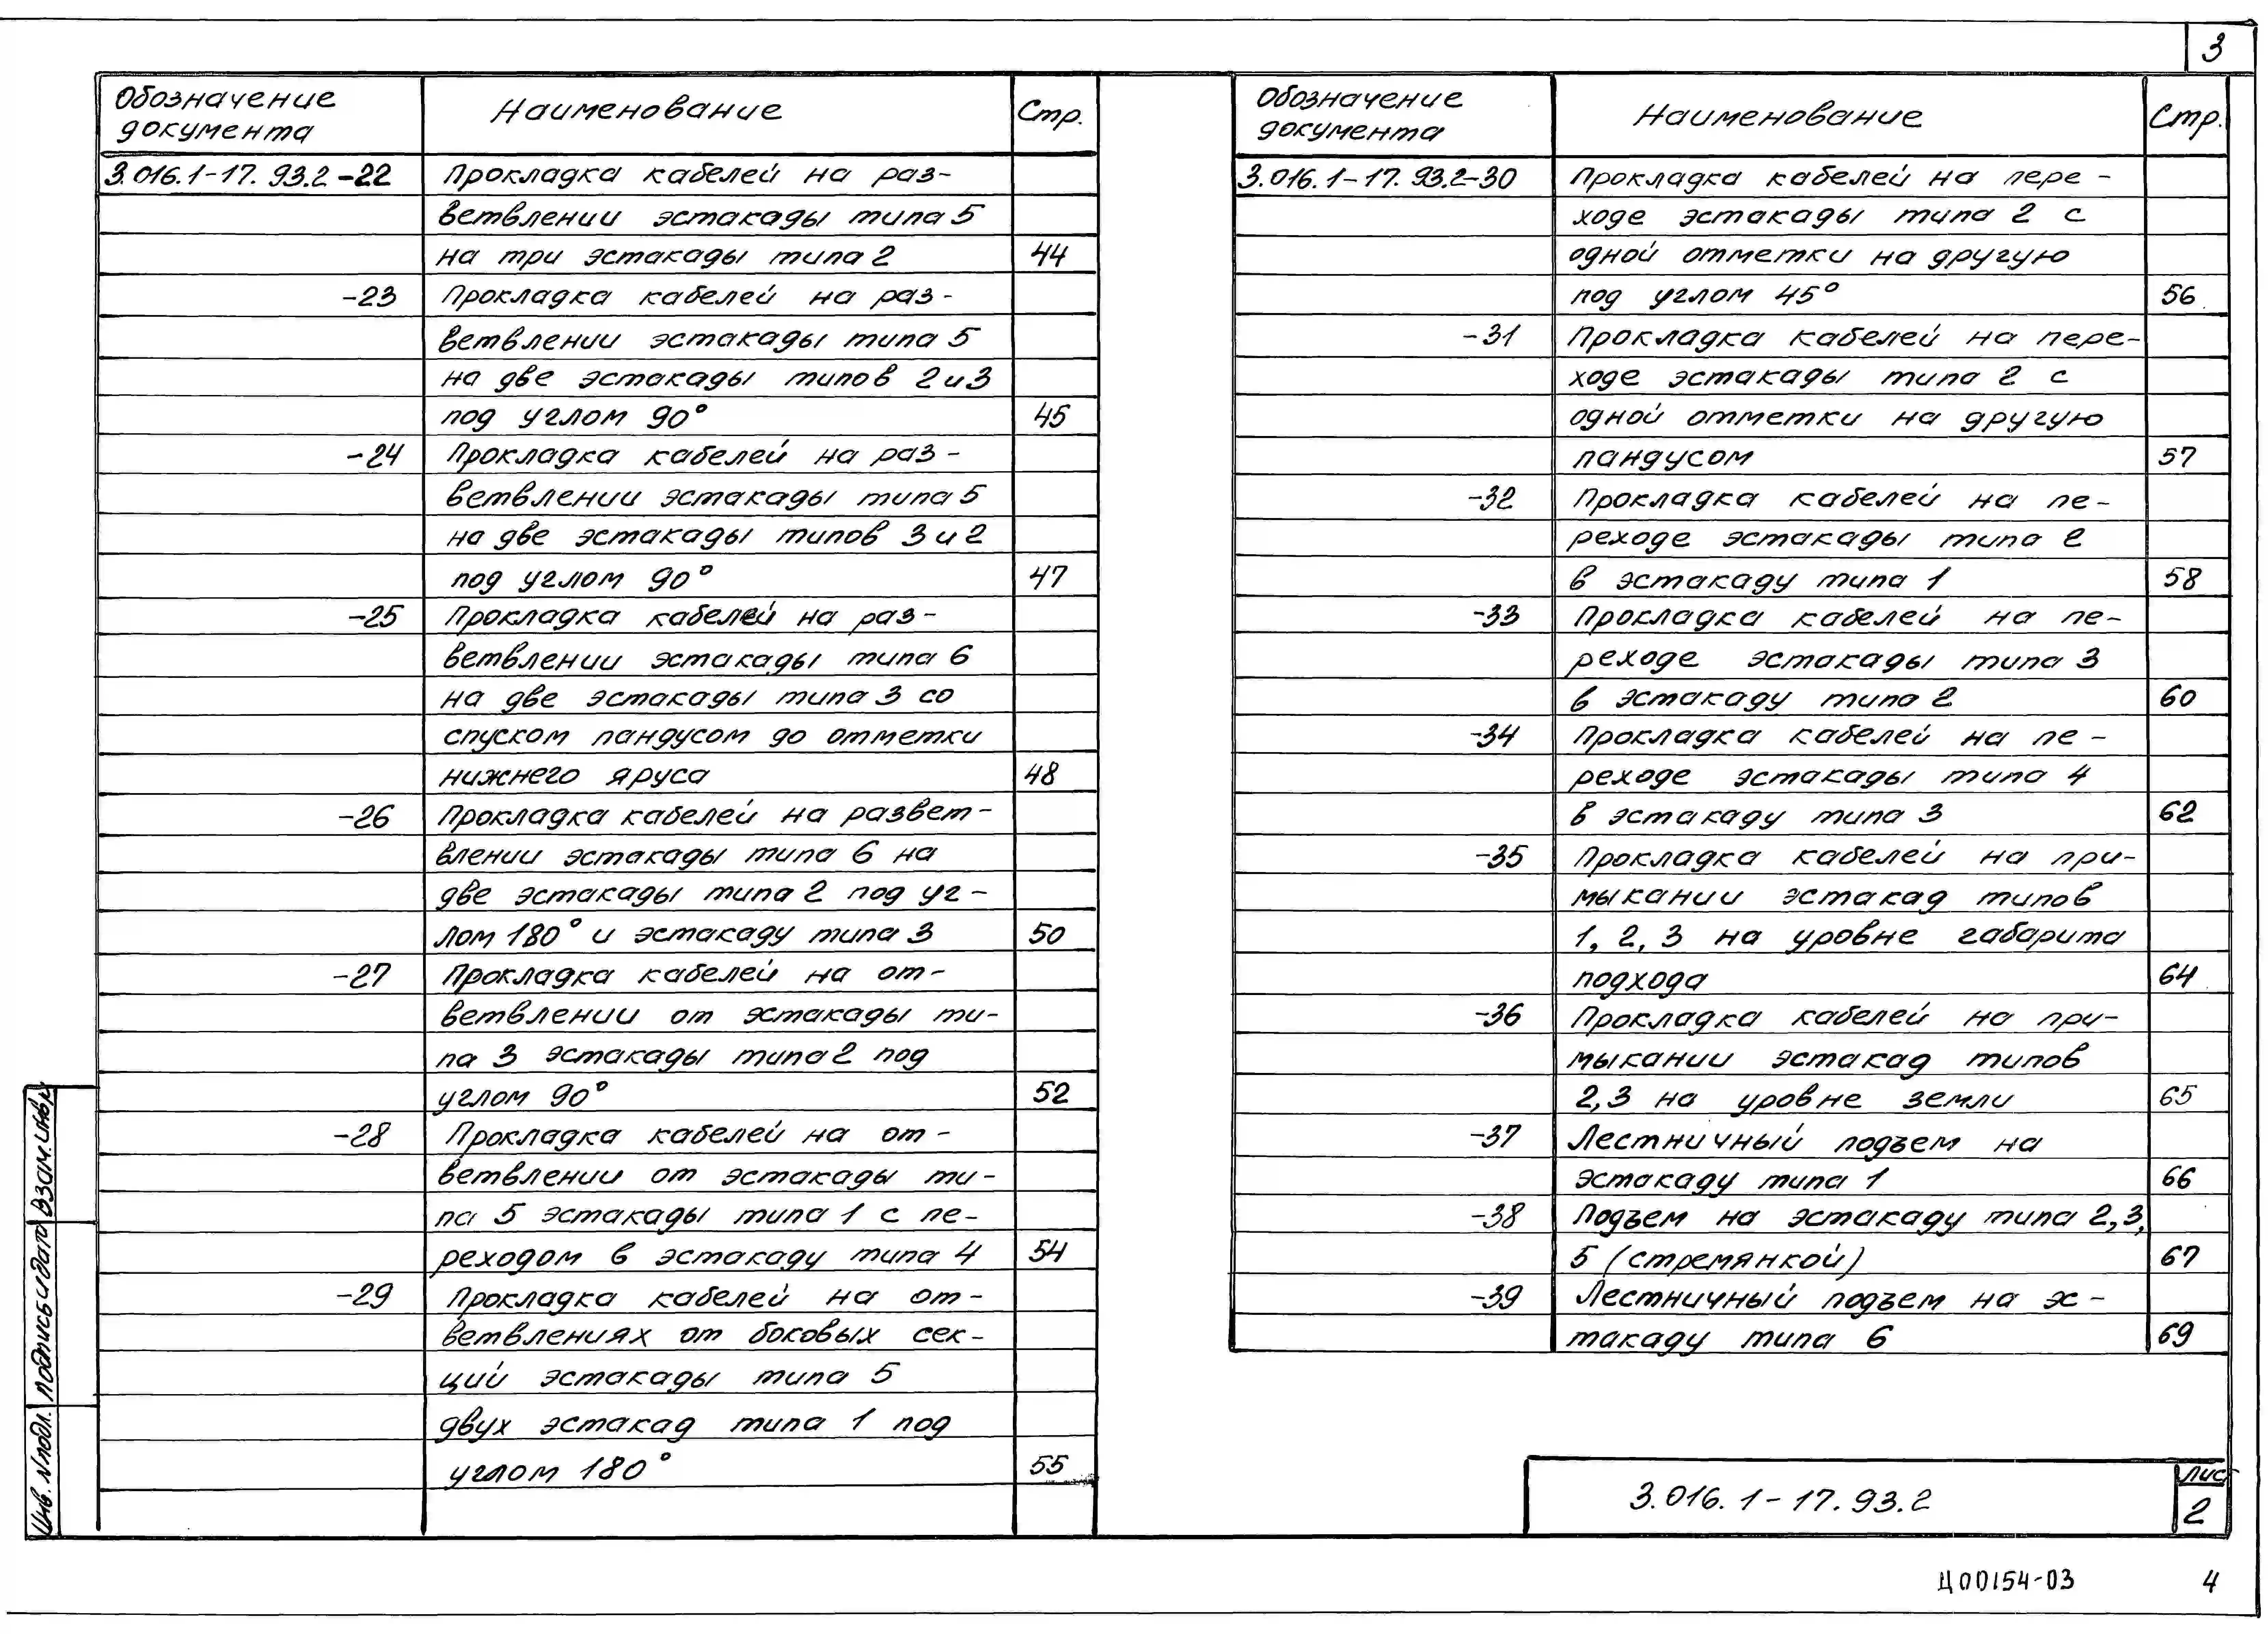 3
Обозначение документа Наименование Стр.
3.016.1-17.93.2-22 Прокладка кабелей на раз-
ветвлении эстакады типа 5
на три эстакады типа 2 44
-23 Прокладка кабелей на раз-
ветвлении эстакады типа 5
на две эстакады типов 2 и 3
под углом 90° 45
-24 Прокладка кабелей на раз-
ветвлении эстакады типа 5
на две эстакады типов 3 и 2
под углом 90° 47
-25 Прокладка кабелей на раз-
ветвлении эстакады типа 6
на две эстакады типа 3 со
спуском пандусом до отметки
нижнего яруса 48
-26 Прокладка кабелей на развет-
влении эстакады типа 6 на
две эстакады типа 2 под уг-
лом 180° и эстакаду типа 3 50
-27 Прокладка кабелей на от-
ветвлении от эстакады ти-
па 3 эстакады типа 2 под
углом 90° 52
-28 Прокладка кабелей на от-
ветвлении от эстакады ти-
па 5 эстакады типа 1 с пе-
реходом в эстакаду типа 4 54
-29 Прокладка кабелей на от-
ветвлениях от боковых сек-
ций эстакады типа 5
двух эстакад типа 1 под
углом 180° 55
Обозначение документа Наименование Стр.
3.016.1-17.93.2-30 Прокладка кабелей на пере-
ходе эстакады типа 2 с
одной отметки на другую
под углом 45° 56
-31 Прокладка кабелей на пере-
ходе эстакады типа 2 с
одной отметки на другую
пандусом 57
-32 Прокладка кабелей на пе-
реходе эстакады типа 2
в эстакаду типа 1 58
-33 Прокладка кабелей на пе-
реходе эстакады типа 3
в эстакаду типа 2 60
-34 Прокладка кабелей на пе-
реходе эстакады типа 4
в эстакаду типа 3 62
-35 Прокладка кабелей на при-
мыкании эстакад типов
1, 2, 3 на уровне габарита
подхода 64
-36 Прокладка кабелей на при-
мыкании эстакад типов
2,3 на уровне земли 65
-37 Лестничный подъем на
эстакаду типа 1 66
-38 Подъем на эстакаду типа 2,3,
5 (стремянкой) 67
-39 Лестничный подъем на эс-
такаду типа 6 69
Инв. N подл. Подпись и дата Взам. инв. N
3.016.1-17.93.2
Лист
2
Ц00154-03 4